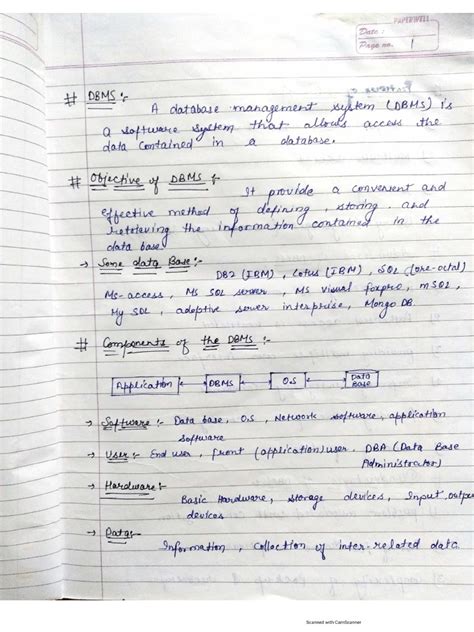 PAPERWELL
Date :
Page no. 1
# DBMS :-
A database management system (DBMS) is
a software system that allows access the
data contained in a database.
# Objective of DBMS :-
It provide a convenient and
effective method of defining, storing and
retrieving the information contained in the
data base
→ Some data Base :-
DB2 (IBM), Lotus (IBM), SQL (ore-octal)
Ms-access, Ms SQL server, MS visual foxpro, mSQL,
My SQL, adoptive server interprise, Mongo DB
# Components of the DBMS :-
Application DBMS O.S Data
Base
→ Software :- Data base, O.S, Network software, application
software
→ User :- End user, front (application) user, DBA (Data Base
Administrator)
→ Hardware :-
Basic Hardware, storage devices, Input, output
devices
→ Data :-
Information, Collection of inter-related data.
Scanned with CamScanner